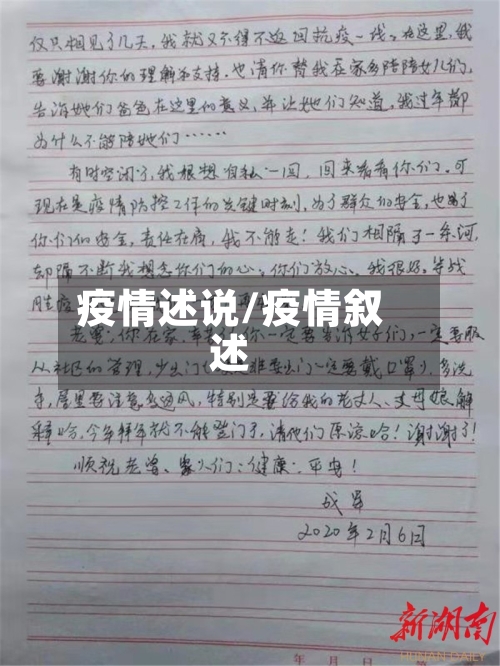 仅只相见了几天，我就又不得不返回抗疫一线。在这里，我
要谢谢你的理解和支持。也请你替我在家多陪陪女儿们，
告诉她们爸爸在这里的意义，并让她们知道，我过年都
为什么不能陪她们……
有时空闲了，我很想自私一回，回来看看你们。可
现在是疫情防控工作的关键时刻，为了群众们的安全，也为了
你们的安全，责任在肩，我不能走！我们相隔了一条河，
却隔不断我想念你们的心，你们放心，我很好，等战
胜疫
疫情述说/疫情叙
述
老婆，你在家，
你一定要
一定要服
从社区的管理，少出门
一定要戴口罩），多洗
手，屋里要注意多通风，特别是要给我的老丈人、丈母娘解
释哈，今年拜年就不能登门了，请他们原谅哈！谢谢了！
顺祝老婆、家人们：健康、平安！
成军
2020年2月6日
新湖南
HUNAN DAILY
年 月 日